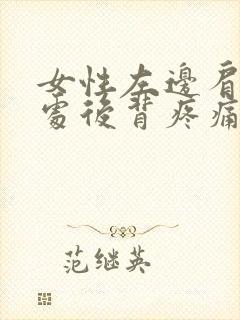 女性左邊肩
處後背疼痛
范继英